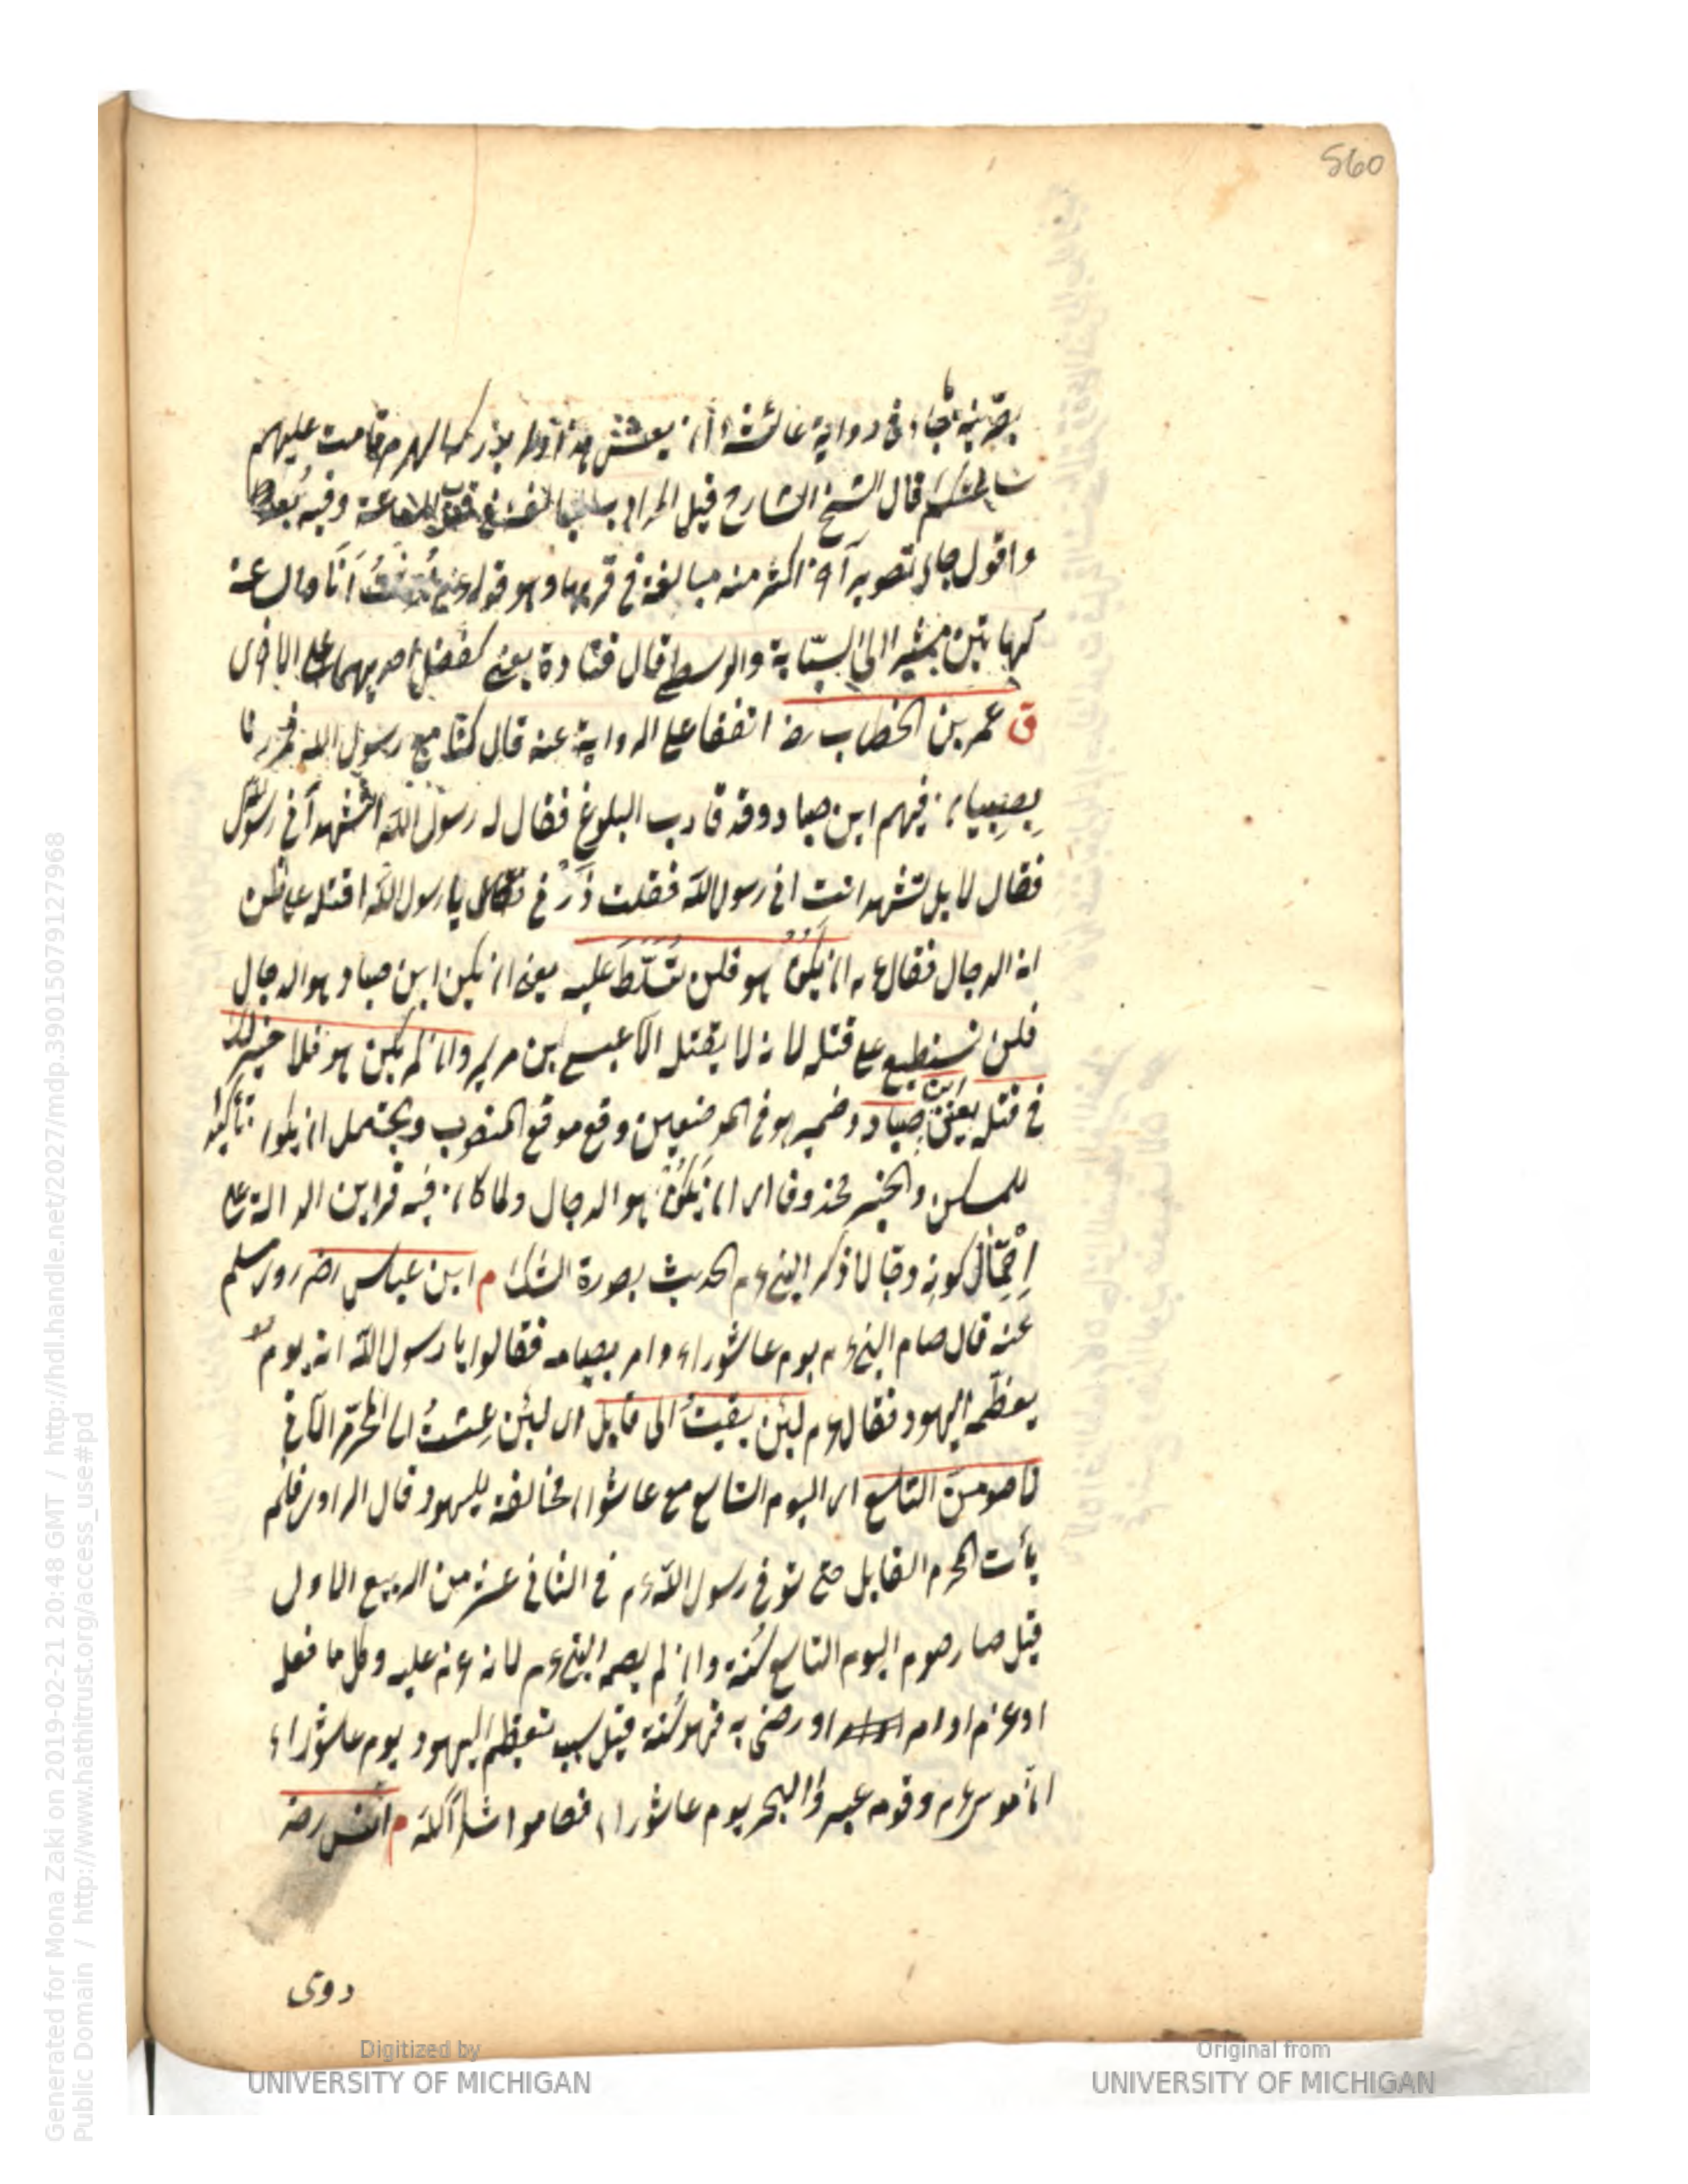 560
في رواية عائشة ان يعش هذا لم يدركه الهرم قامت عليهم
ساعتكم قال الشيخ الشارح قيل المراد المبالغة في قرب الساعة وفيه بُعد
واقول جاء تصوير آخر اكثر منه مبالغة في قربها وهو قوله عم بُعِثْتُ اَنَا والساعة
كهاتين مشيرا الى السبّابة والوسطى قال قتادة يعنى كفضل احديهما على الاخرى
ق عمر بن الخطاب رضه اتفقا على الرواية عنه قال كنّا مع رسول الله فمررنا
بصِبيان فيهم ابن صياد وقد قارب البلوغ فقال له رسول الله اتشهد أني رسول الله
فقال لا بل تشهد انت انى رسول الله فقلت ذَرْني يا رسول الله اقتله على ظن
انه الدجال فقال عم ان يكن هو فلن تُسَلَّطَ عليه يعنى ان يكن ابن صياد هو الدجال
فلن تستطيع على قتله لانه لا يقتله الا عيسى بن مريم وان لم يكن هو فلا خير لك
في قتله يعنى ابن صياد وضمير هو في الموضعين وقع موقع المنصوب ويحتمل ان يكون تأكيدا
للمستكن والخبر محذوف اى ان يكن هو الدجال ولما كان فيه قراين الدالة على
احتمال كونه دجّالا ذكر النبى عم الحديث بصورة الشك م ابن عباس رضه روى مسلم
عنه قال صام النبى عم يوم عاشوراء وامر بصيامه فقالوا يا رسول الله انه يوم
يعظّمه اليهود فقال عم لئن بقيتُ الى قابل اى لئن عِشتُ الى المحرّم الآتي
لاصومنّ التاسع اى اليوم التاسع مع عاشورا مخالفة لليهود قال الراوى فلم
يأت المحرم القابل حتى توفى رسول الله عم في الثانى عشر من الربيع الاول
قيل صار صوم اليوم التاسع سُنة وان لم يصمه النبى عم لانه عزم عليه وكل ما فعله
او عزم او امر او رضى به فهو سُنة قيل سبب تعظيم اليهود يوم عاشوراء
انّ موسى عم وقومه عبروا البحر يوم عاشورا فصاموا شكراً لله م انس رضه
روى
Generated for Mona Zaki on 2019-02-21 20:48 GMT / http://hdl.handle.net/2027/mdp.39015079127968
Public Domain / http://www.hathitrust.org/access_use#pd
Digitized by
UNIVERSITY OF MICHIGAN
Original from
UNIVERSITY OF MICHIGAN